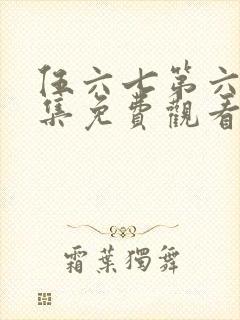 伍六七第六
集免費觀看
霜葉獨舞